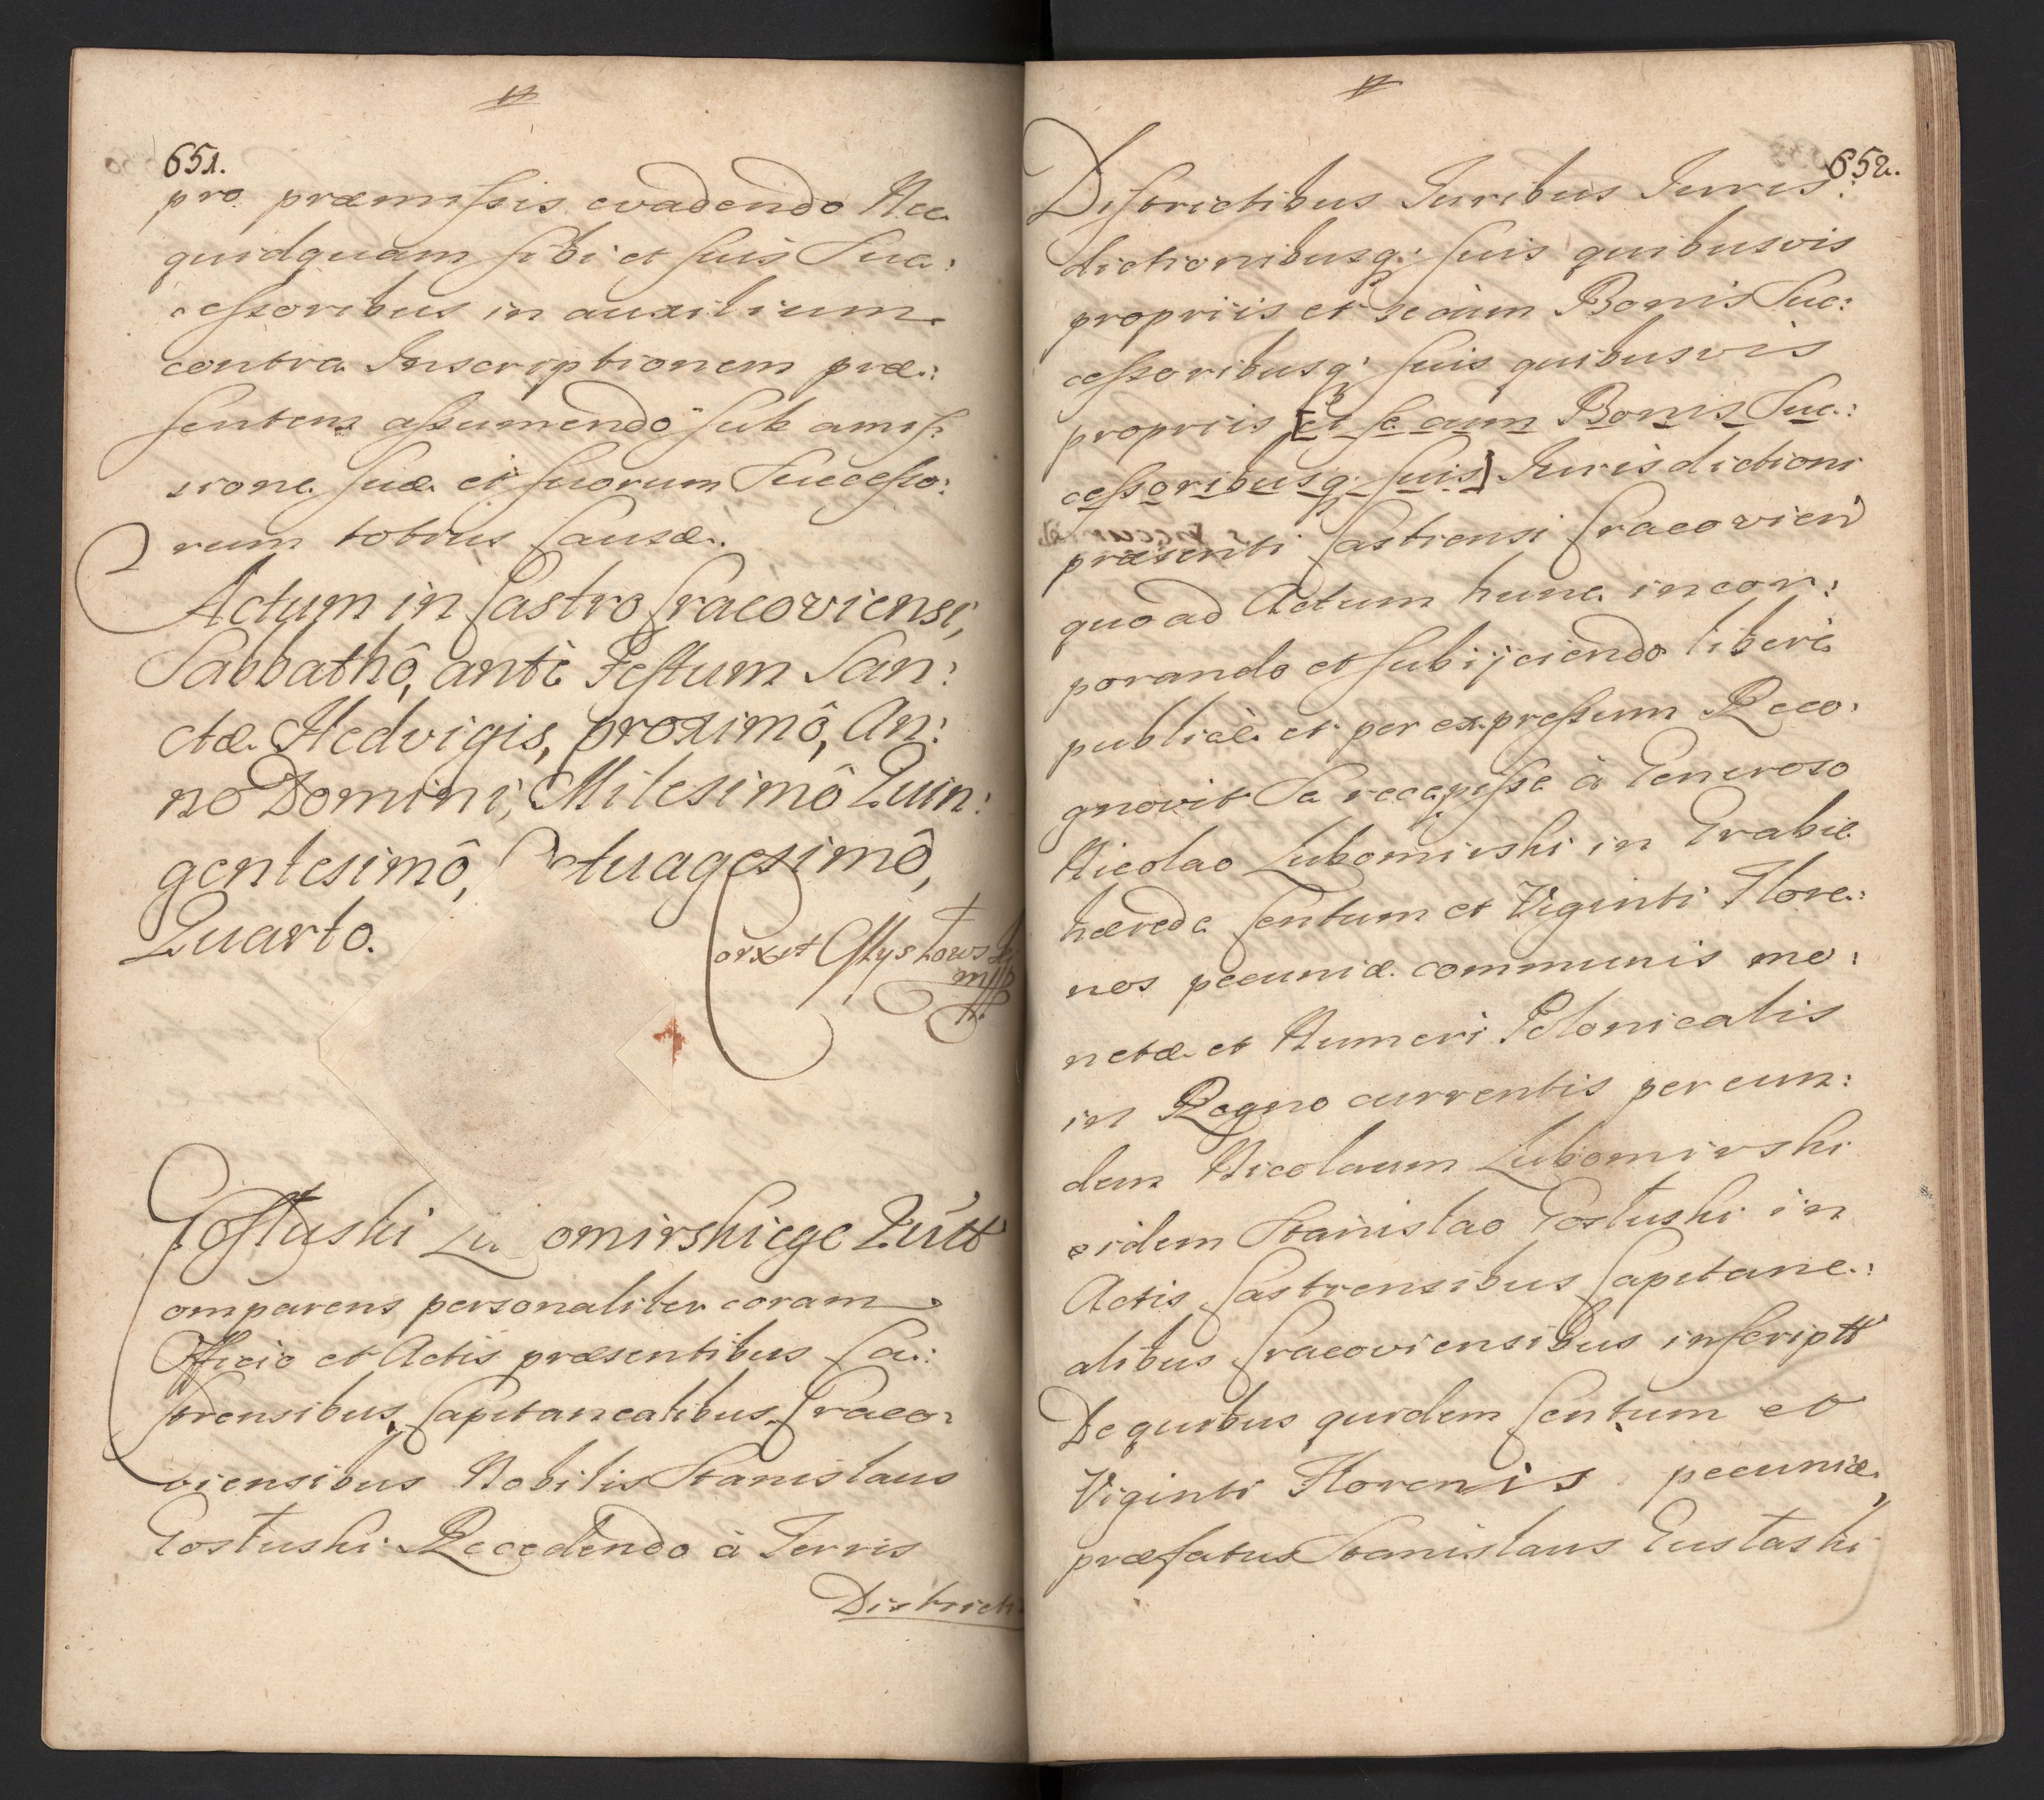 651.
pro præmissis evadendo Nec
quidquam sibi et suis Suc:
cessoribus in auxilium
contra Inscriptionem præ:
sentem assumendo sub amis:
sione suæ et suorum Successo:
rum totius Causæ.
Actum in Castro Cracoviensi,
Sabbathô, antè Festum San:
ctæ Hedvigis, proximô, An:
no Domini, Milesimô Quin:
gentesimô, Octuagesimô,
Quarto.
Corxit
Gostuski Lubomirskiego Quitt
Comparens personaliter coram
Officio et Actis præsentibus Ca:
strensibus Capitanealibus Craco:
viensibus Nobilis Stanislaus
Gostuski Recedendo à Terris
Districti
652.
Districtibus Iuribus Iuris:
dictionibusq; suis quibusvis
propriis et se cum Bonis Suc:
cessoribusq; suis quibusvis
propriis [et se cum Bonis Suc:
cessoribusq; suis] Iurisdictioni
præsenti Castrensi Cracovien
quo ad Actum hunc incor:
porando et subijciendo liberè
publicè et per expressum Reco:
gnovit Se recepisse à Generoso
Nicolao Lubomirski in Grabie
hærede Centum et Viginti Flore:
nos pecuniæ communis mo:
netæ et Numeri Polonicalis
in Regno currentis per eun:
dem Nicolaum Lubomirski
eidem Stanislao Gostuski in
Actis Castrensibus Capitane:
alibus Cracoviensibus inscriptt
De quibus quidem Centum et
Viginti Florenis pecuniæ,
præfatus Stanislaus Gustaski